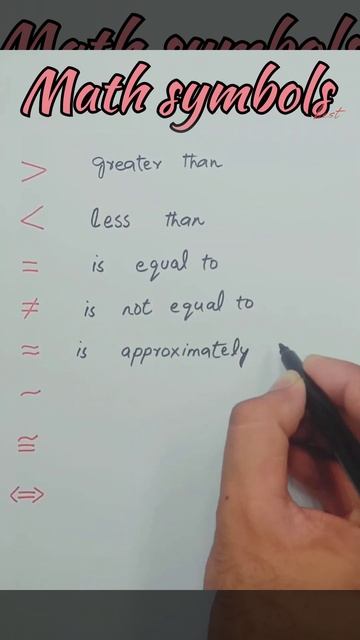 Math symbols
Math symbols
> greater than
< less than
= is equal to
≠ is not equal to
≈ is approximately
~
≅
⇔